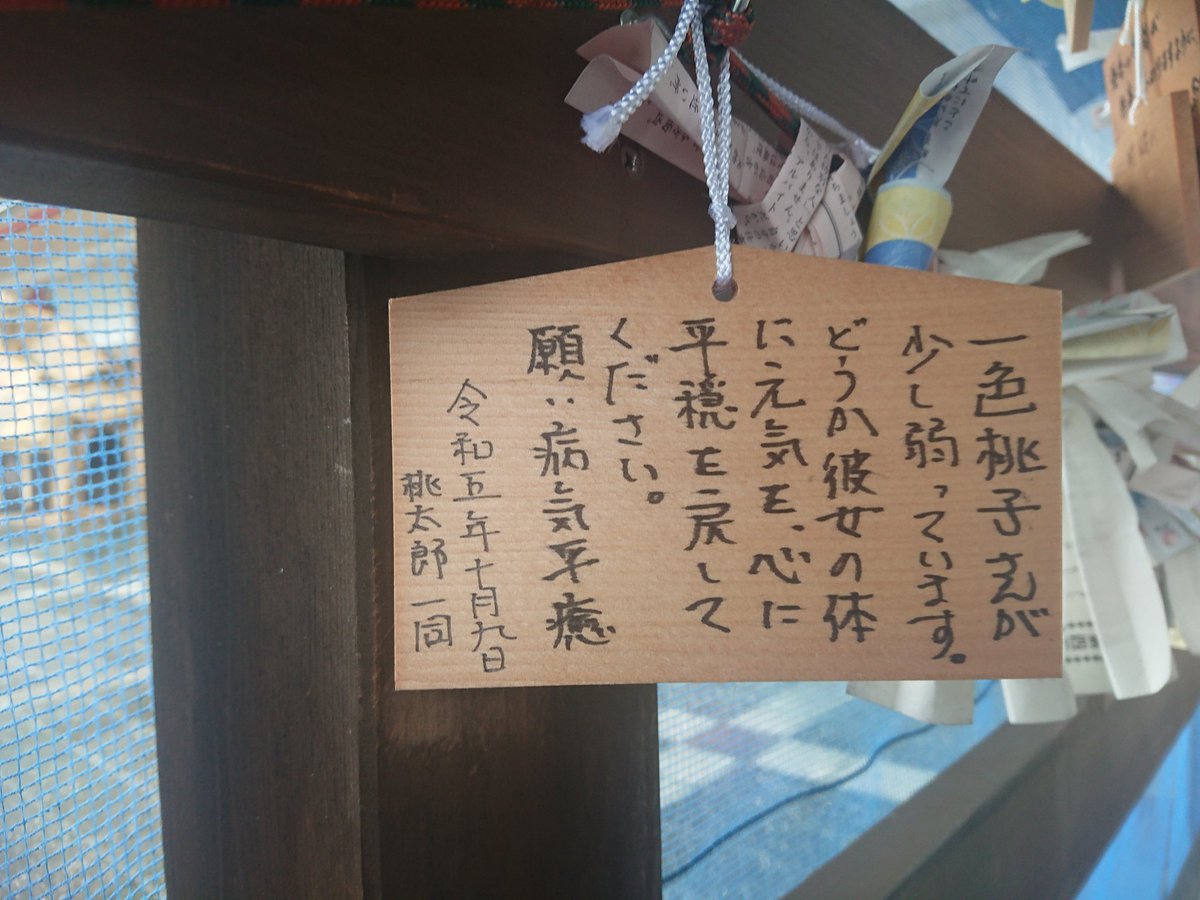 一色桃子さんが
少し弱っています。
どうか彼女の体
に元気を、心に
平穏を戻して
ください。
願い:病気平癒
令和五年十月九日
桃太郎一同